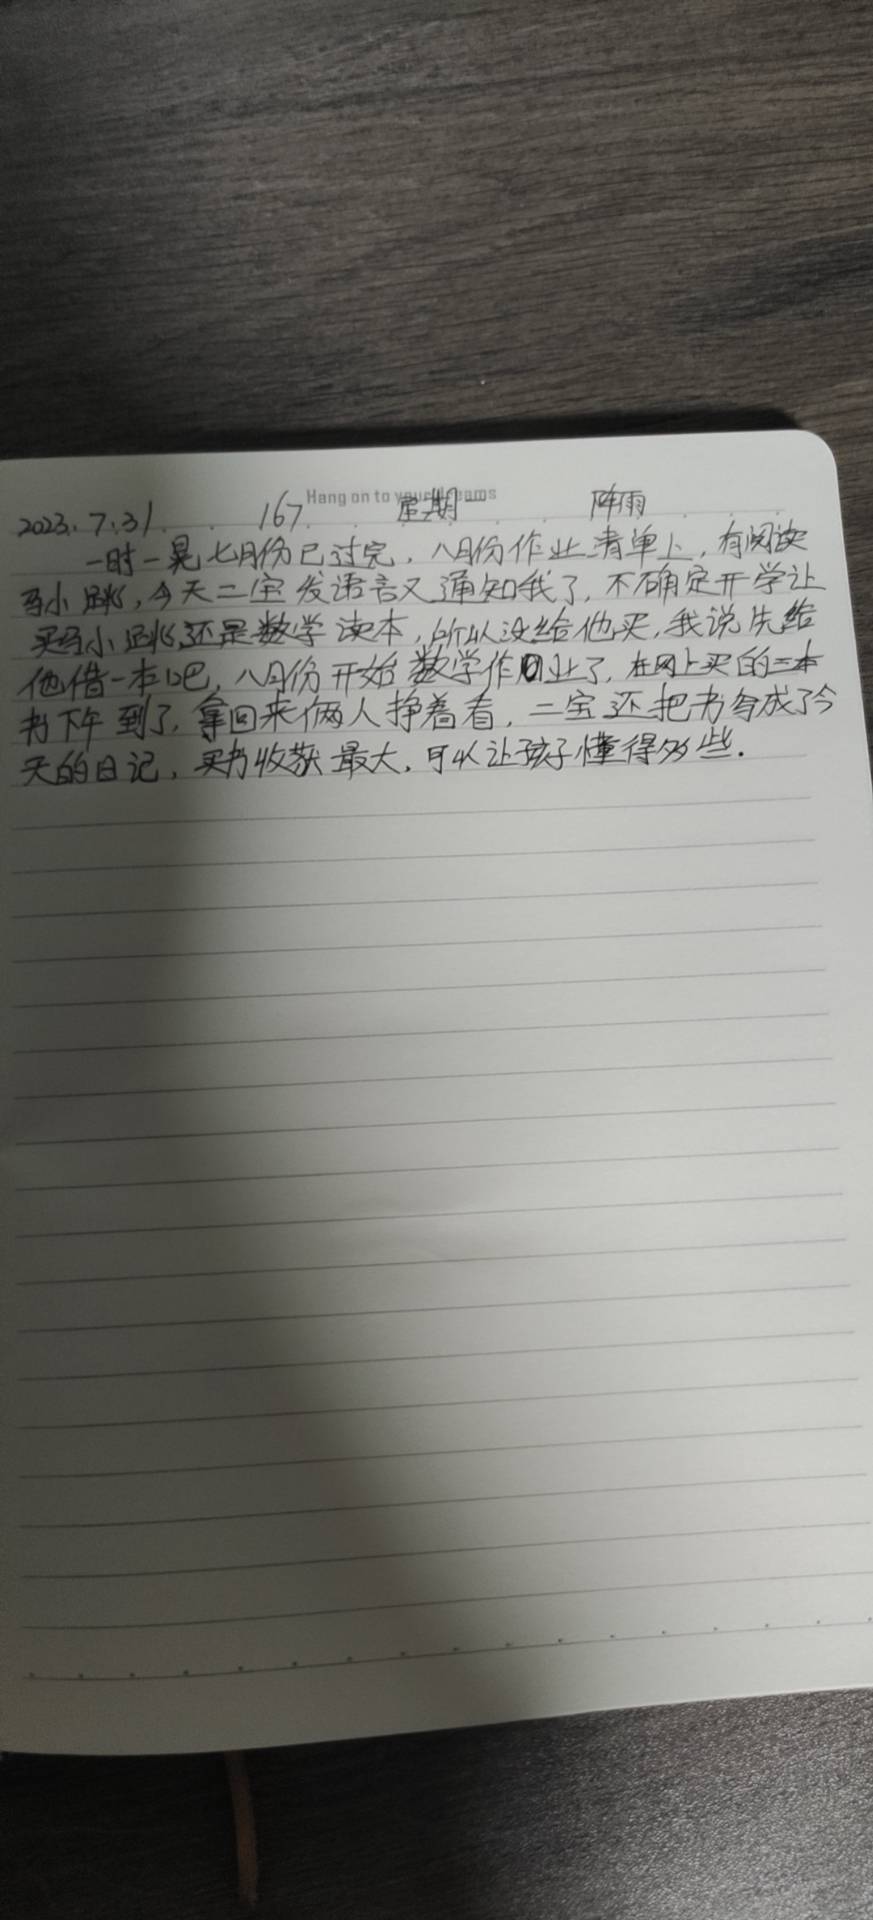 Hang on to your dreams
2023.7.31 167 星期一 阵雨
一时一晃七月份已过完，八月份作业清单上，有阅读
马小跳，今天二宝发语言又通知我了，不确定开学让
买马小跳，还是数学读本，所以没给他买，我说先给
他借一本吧，八月份开始数学作业了，在网上买的三本
书下午到了，拿回来俩人挣着看，二宝还把书写成了今
天的日记，买书收获最大，可以让孩子懂得多些.